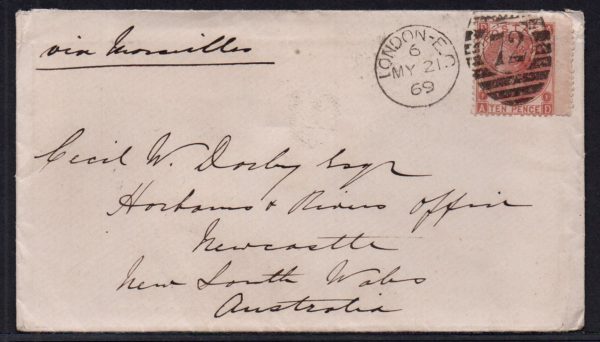 via Marseilles
LONDON-E.C
6
MY 21
69
72
A TEN PENCE D
Cecil W. Darby Esqr
Harbours & Rivers Office
Newcastle
New South Wales
Australia